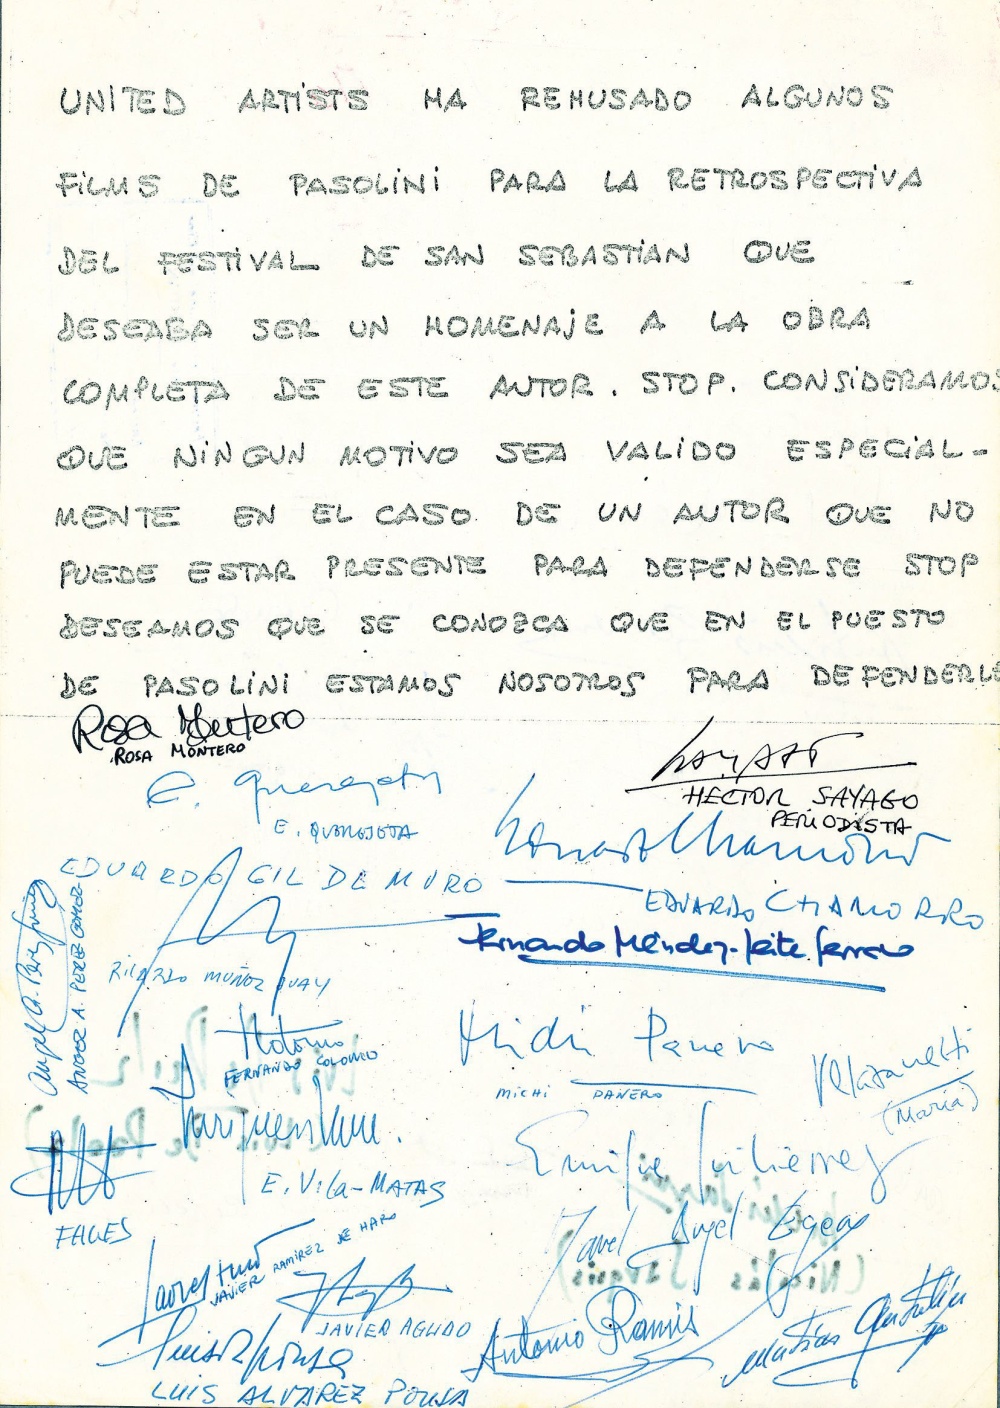 UNITED ARTISTS HA REHUSADO ALGUNOS
FILMS DE PASOLINI PARA LA RETROSPECTIVA
DEL FESTIVAL DE SAN SEBASTIAN QUE
DESEABA SER UN HOMENAJE A LA OBRA
COMPLETA DE ESTE AUTOR. STOP. CONSIDERAMOS
QUE NINGUN MOTIVO SEA VALIDO ESPECIAL-
MENTE EN EL CASO DE UN AUTOR QUE NO
PUEDE ESTAR PRESENTE PARA DEFENDERSE STOP
DESEAMOS QUE SE CONOZCA QUE EN EL PUESTO
DE PASOLINI ESTAMOS NOSOTROS PARA DEFENDERLE
Rosa Montero
ROSA MONTERO
HECTOR SAYAGO
PERIODISTA
E. Querejeta
E. QUEREJETA
EDUARDO GIL DE MURO
EDUARDO CHAMORRO
Fernando Méndez-Leite Serrano
Angel A. Pérez Gómez
ANGEL A. PEREZ GOMEZ
RICARDO MUÑOZ SUAY
FERNANDO COLOMO
Michi Panero
MICHI PANERO
(MARÍA)
E. VILA-MATAS
Emilio Gutiérrez
FALLES
Angel Egea
JAVIER RAMIREZ DE HARO
JAVIER AGUDO
Antonio Ramis
Matías Antolín
LUIS ALVAREZ POUSA
(Nicolás